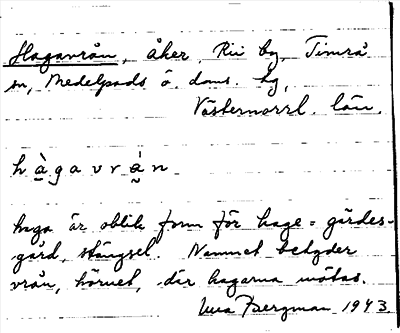 Hagavrån, åker, Rii by, Timrå
sn, Medelpads ö. doms. hg,
Västernorrl. län.
hàgavrán
haga är oblik form för hage = gärdes-
gård, stängsel. Namnet betyder
vrån, hörnet, där hagarna mötas.
Bergman 1943